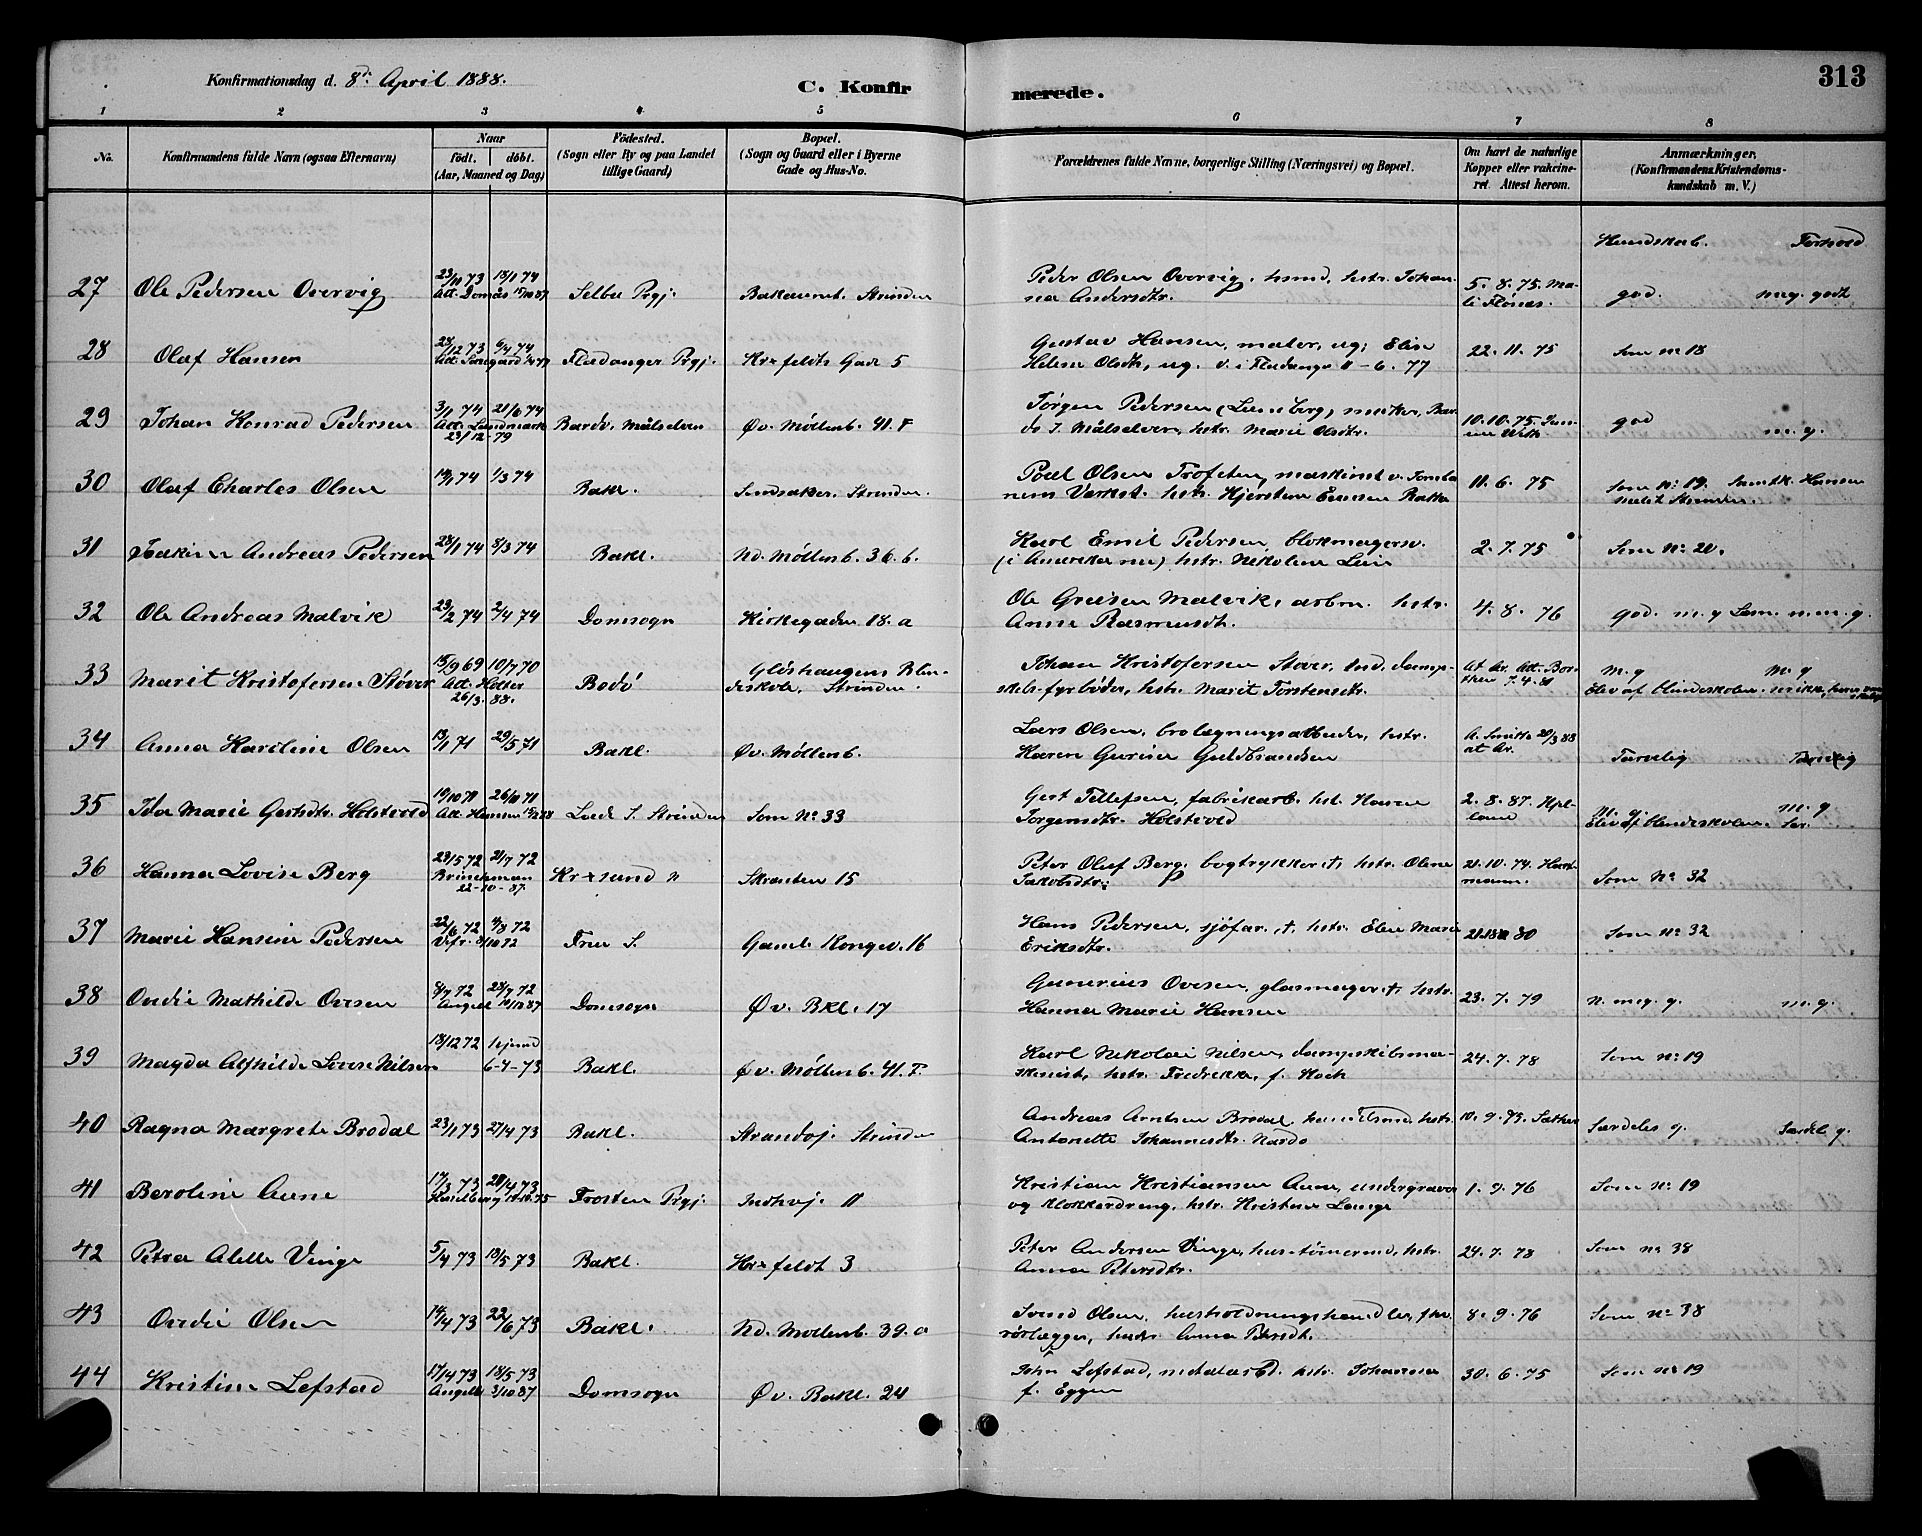 Konfirmationsdag d. 8de April 1888.
C. Konfirmerede.
313
1 2 3 4 5 6 7 8
No. Konfirmandens fulde Navn (ogsaa Efternavn) Naar født. døbt. (Aar, Maaned og Dag) Fødested. (Sogn eller By og paa Landet tillige Gaard) Bopæl. (Sogn og Gaard eller i Byerne Gade og Hus-No.
Forældrenes fulde Navne, borgerlige Stilling (Næringsvei) og Bopæl. Om havt de naturlige Kopper eller vakcineret. Attest herom. Anmærkninger. (Konfirmandens Kristendomskundskab m. V.)
Kundskab. Forhold
27 Ole Pedersen Overvig 23/11 73 18/1 74 Selbu Prgj. Bakaunet. Strinden Peder Olsen Overvig, hsmd, hstr. Johan-
na Andersdtr. 5. 8. 75. god. meg. godt
28 Olaf Hansen 28/12 73 6/4 74 Fladanger Prgj. Kr×feldts Gade 5 Gustav Hansen, maler, ug; Elise
Helene Olsdtr, ug. v. i Fladanger 11-6. 77 22. 11. 75 Som no 18
29 Johan Konrad Pedersen 3/1 74 21/6 74 Att. Landmark 23/12-79 Bardo, Målselven Øv. Møllenb. 41. F Jørgen Pedersen
Målselven, hstr. Marie Olsdtr. 10. 10. 75. god m. g.
30 Olaf Charles Olsen 19/1 74 1/3 74 Bakl. Strinden. Poul Olsen Trofeten, maskinist v.
Værkst. hstr. 11. 6. 75 Som no 19.
31 Joakim Andreas Pedersen 28/1 74 8/3 74 Bakl. Nd. Møllenb. 36. b. Karl Emil Pedersen, blokmagersv.
(i Amerika nu) hstr. Nikoline Lein 2. 7. 75 Som No 20.
32 Ole Andreas Malvik 23/2 74 2/4 74 Domsogn Kirkegaden 18. a Ole Malvik, arbm. hstr.
Anne Rasmusdt. 4. 8. 76 god. m. g
33 Marit Kristofersen Støver 15/9 69 10/7 70 Att. Holter 26/3. 88. Bodø Gløshaugens Blin-
deskole, Strinden. Johan Kristofersen Støver, damp-
skibsfyrbøder, hstr. Marit Torstensdtr. 7. 4. 81 m. g m. g
Elev af blindeskolen.
34 Anna Karoline Olsen 13/1 71 29/5 71 Bakl. Øv. Møllenb. Lars Olsen, brolægningsarbeider, hstr.
Karen Gurine Guldbrandsen 20/3 88 Tarvelig
35 Ida Marie Gertsdtr. Holstvold 19/10 71 26/11 71 Att. Hansen Lade S. Strinden Som No 33 Gert Tellefsen, fabrikarb. hst. Karen
Jørgensdtr. Holstvold 2. 8. 87. m. g m. g
Elev af blindeskolen.
36 Hanna Lovise Berg 23/5 72 21/7 72 Brinchman 22-10-87. Kr×sund N Skrænten 15 Peter Olaf Berg, bogtrykker †, hstr. Oline
Jakobsdtr. 21. 10. 74. Hart-
mann. Som No 32
37 Marie Hansine Pedersen 22/6 72 4/8 72 Frue S. Gaml. Kongev. 16 Hans Pedersen, sjøfar. †. hstr. Elen Marie
Eriksdtr. Som no 32
38 Ovidie Mathilde Ovesen 8/7 72 28/7 72 Angell 10/12 87 Domsogn Øv. Bkl. 17 Gunerius Ovesen, glasmager †, hstr.
Hanna Marie Hansen 23. 7. 79 n. meg. g. m. g.
39 Magda Alfhilde Lovise Nilsen 18/12 72 hjemd 6-4-73 Bakl. Øv. Møllenb. 41. F. Karl Nikolai Nilsen, dampskibsma-
skinist, hstr. Fredrikke, f. Hoch 24. 7. 78 Som no 19
40 Ragna Margrete Brodal 23/1 73 27/4 73 Bakl. Strandvj. Strinden Andreas Arntsen Brodal, hstr.
Antonette Johannesdtr. Nardo 10. 9. 73. Særdeles g. Særdel g.
41 Beroline Aune 17/3 73 20/4 73 Frosten Prgj. Indhvj. 11 Kristian Kristiansen Aune, undergraver
og klokkerdreng, hstr. Kristine Lange 1. 9. 76 Som no 19
42 Petra Alette Vinge 5/4 73 18/5 73 Bakl. Kr×feldt 3 Peter Andersen Vinge, hustømermd, hstr.
Anna Petersdtr. 24. 7. 78 Som no 38
43 Ovidie Olsen 14/4 73 22/6 73 Bakl. Nd. Møllenb. 39. a Svend Olsen, husholdningshandler,
rørlægger, Anna Pedersdt. 8. 9. 76 Som no 38
44 Kristine Lefstad 17/4 73 18/5 73 Angell 3/10 87 Domsogn Øv. Bakl. 24 John Lefstad, metalarb. hstr. Johanna
f. Eggen 30. 6. 75 Som no 19